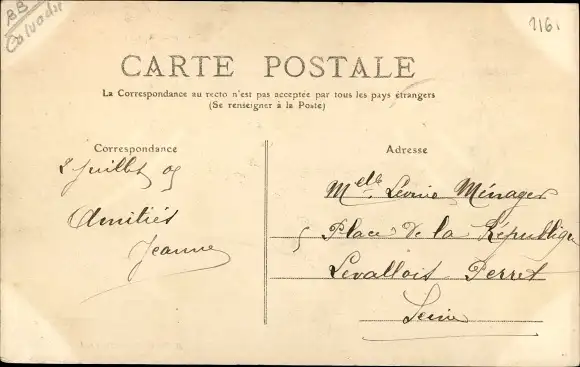 BB
Calvados
1161
CARTE POSTALE
La Correspondance au recto n'est pas acceptée par tous les pays étrangers
(Se renseigner à la Poste)
Correspondance
8 Juillet 05
Amitiés
Jeanne
Adresse
Melle Léonie Ménager
5 Place de la République
Levallois Perret
Seine